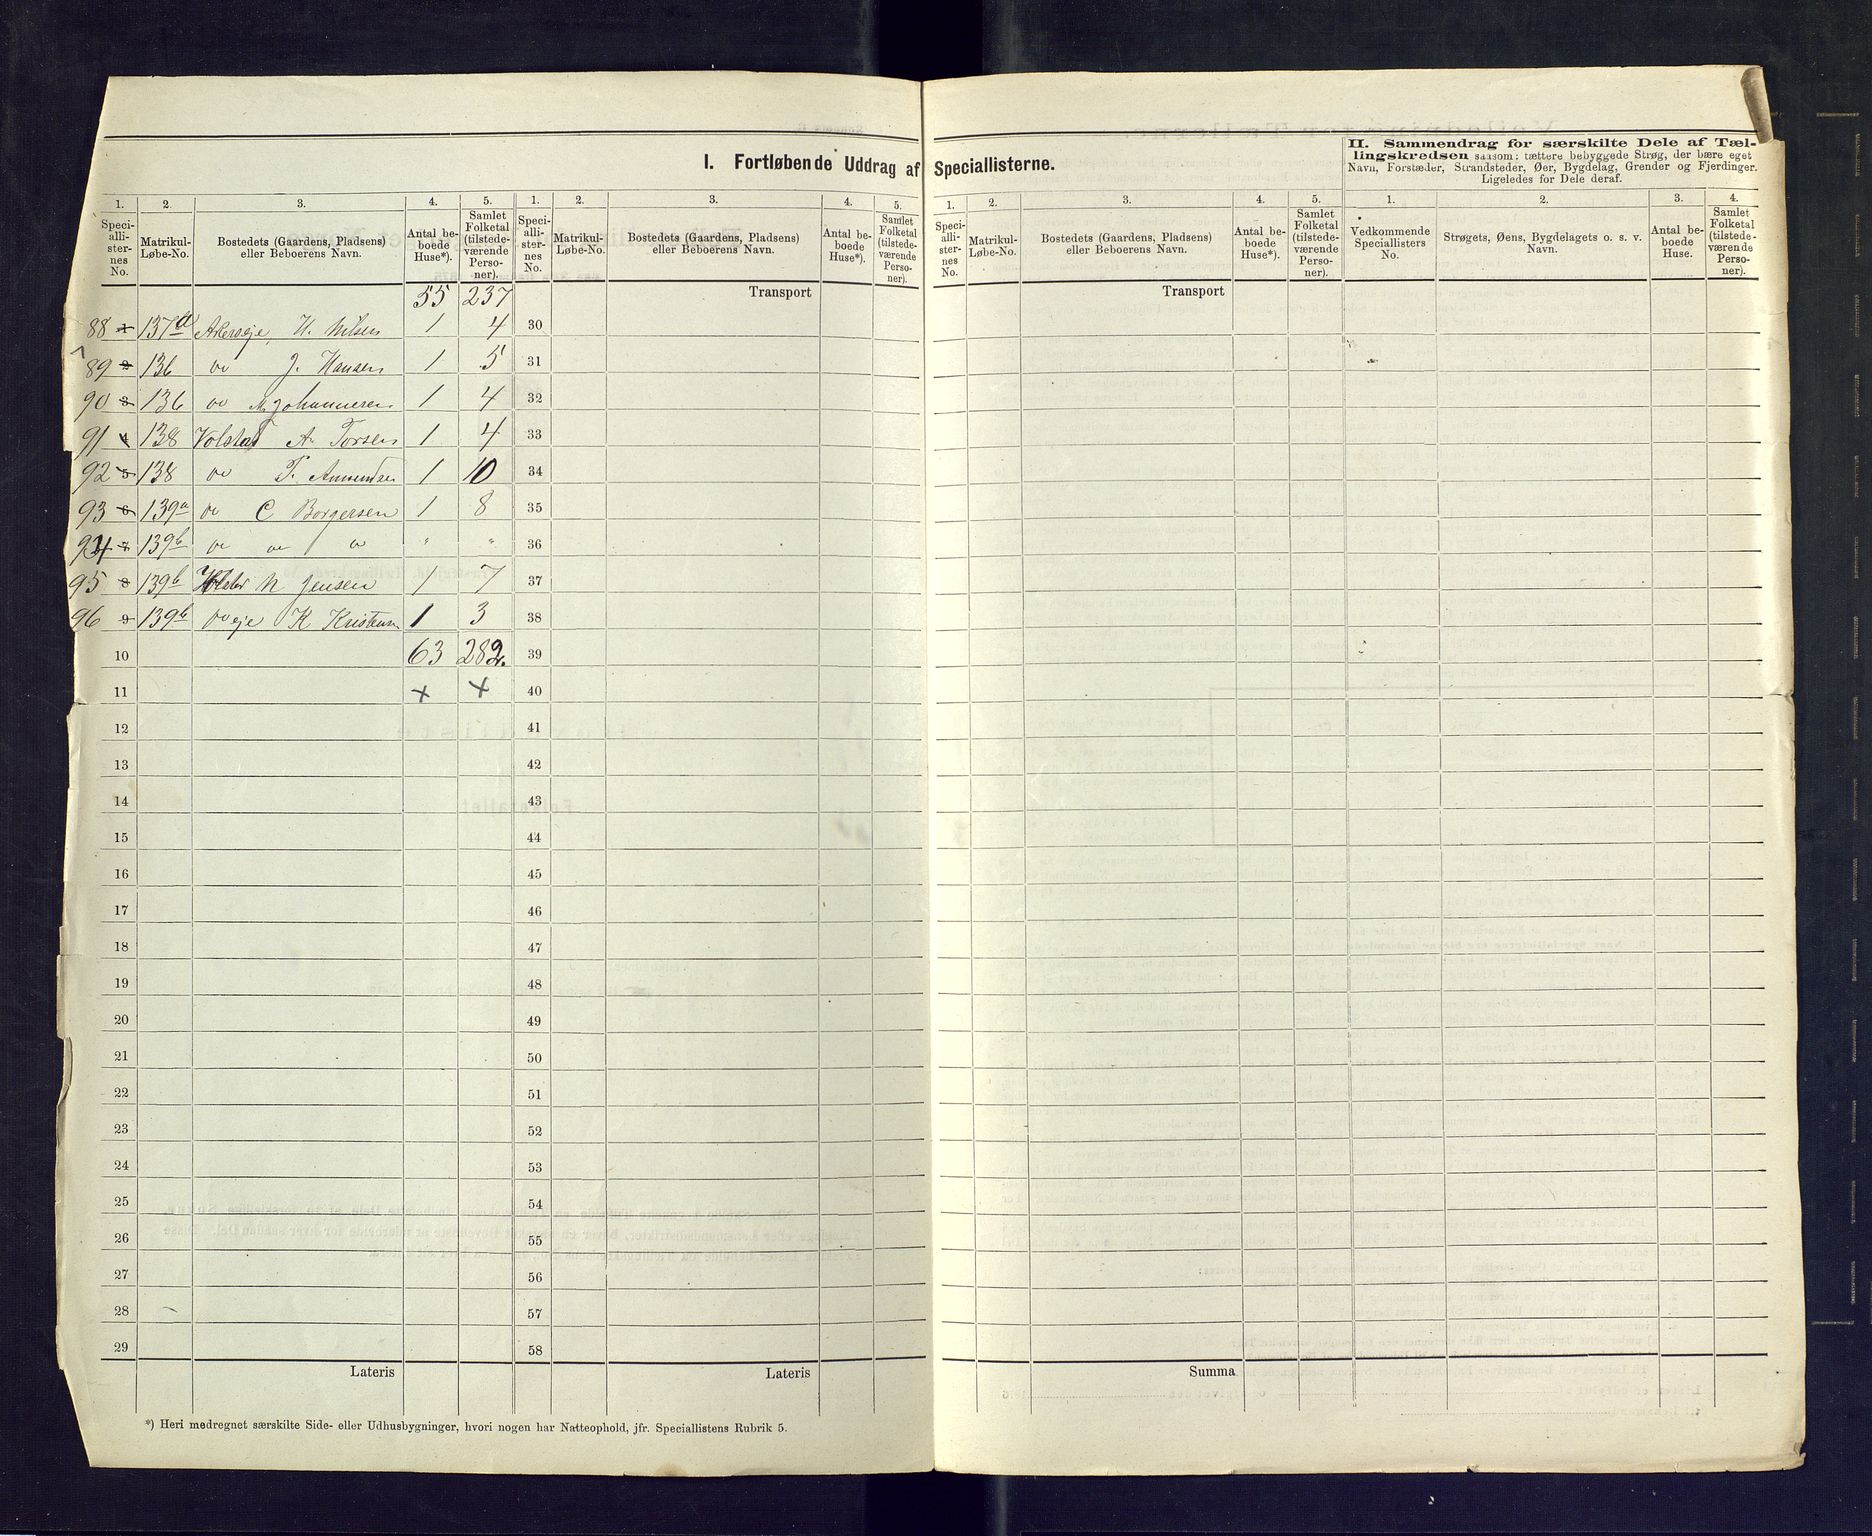 I. Fortløbende Uddrag af Speciallisterne.
II. Sammendrag for særskilte Dele af Tæl-
lingskredsen saasom: tættere bebyggede Strøg, der bære eget
Navn, Forstæder, Strandsteder, Øer, Bygdelag, Grender og Fjerdinger.
Ligeledes for Dele deraf.
1. 2. 3. 4. 5. 1. 2. 3. 4. 5. 1. 2. 3. 4. 5. 1. 2. 3. 4.
Speci-
alli-
ster-
nes
No.
Matrikul-
Løbe-No.
Bostedets (Gaardens, Pladsens)
eller Beboerens Navn.
Antal be-
boede
Huse*).
Samlet
Folketal
(tilstede-
værende
Perso-
ner).
Speci-
alli-
ster-
nes
No.
Matrikul-
Løbe-No.
Bostedets (Gaardens, Pladsens)
eller Beboerens Navn.
Antal be-
boede
Huse*).
Samlet
Folketal
(tilstede-
værende
Perso-
ner).
Speci-
alli-
ster-
nes
No.
Matrikul-
Løbe-No.
Bostedets (Gaardens, Pladsens)
eller Beboerens Navn.
Antal be-
boede
Huse*).
Samlet
Folketal
(tilstede-
værende
Perso-
ner).
Vedkommende
Speciallisters
No.
Strøgets, Øens, Bygdelagets o. s. v.
Navn.
Antal be-
boede
Huse.
Samlet
Folketal
(tilstede-
værende
Perso-
ner).
55 237 Transport Transport
88 1 137a H. Nilsen 1 4 30
89 2 136 do J. Hansen 1 5 31
90 3 136 do Johannesen 1 4 32
91 4 138 Volstad A. Torsen 1 4 33
92 5 138 do T. Amundsen 1 10 34
93 6 139a do C Borgersen 1 8 35
94 7 139b do do do " " 36
95 8 139b N Jensen 1 7 37
96 9 139b do eje K Kristensen 1 3 38
10 63 282. 39
11 × × 40
12 41
13 42
14 43
15 44
16 45
17 46
18 47
19 48
20 49
21 50
22 51
23 52
24 53
25 54
26 55
27 56
28 57
29 58
Lateris Lateris Summa
*) Heri medregnet særskilte Side- eller Udhusbygninger, hvori nogen har Natteophold, jfr. Speciallistens Rubrik 5.